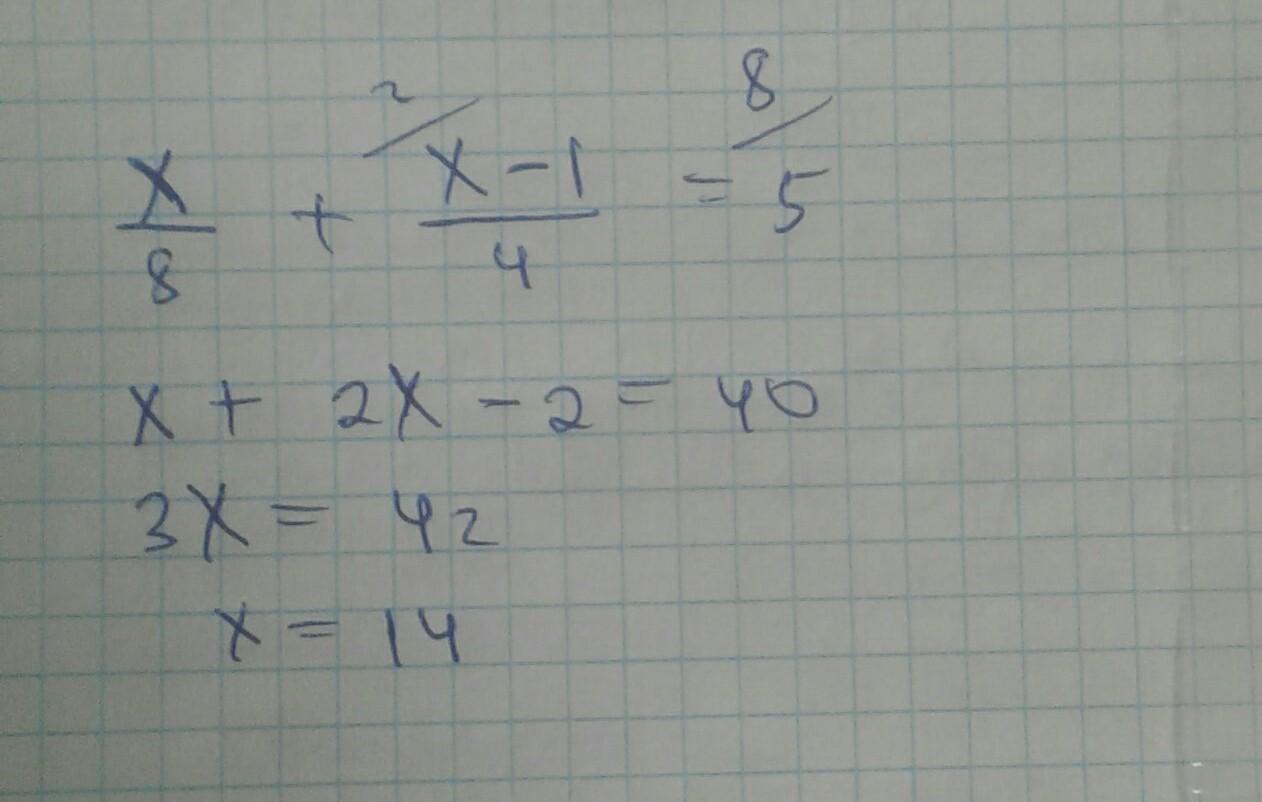 x/8 + ²/ x-1/4 = ⁸/ 5
x + 2x - 2 = 40
3x = 42
x = 14